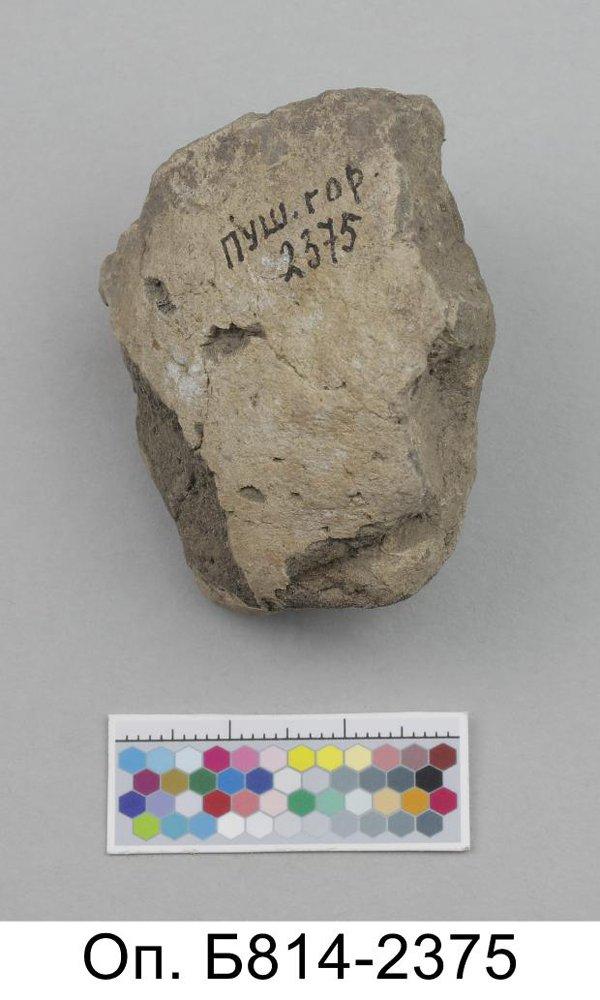 пуш. гор.
2375
Оп. Б814-2375